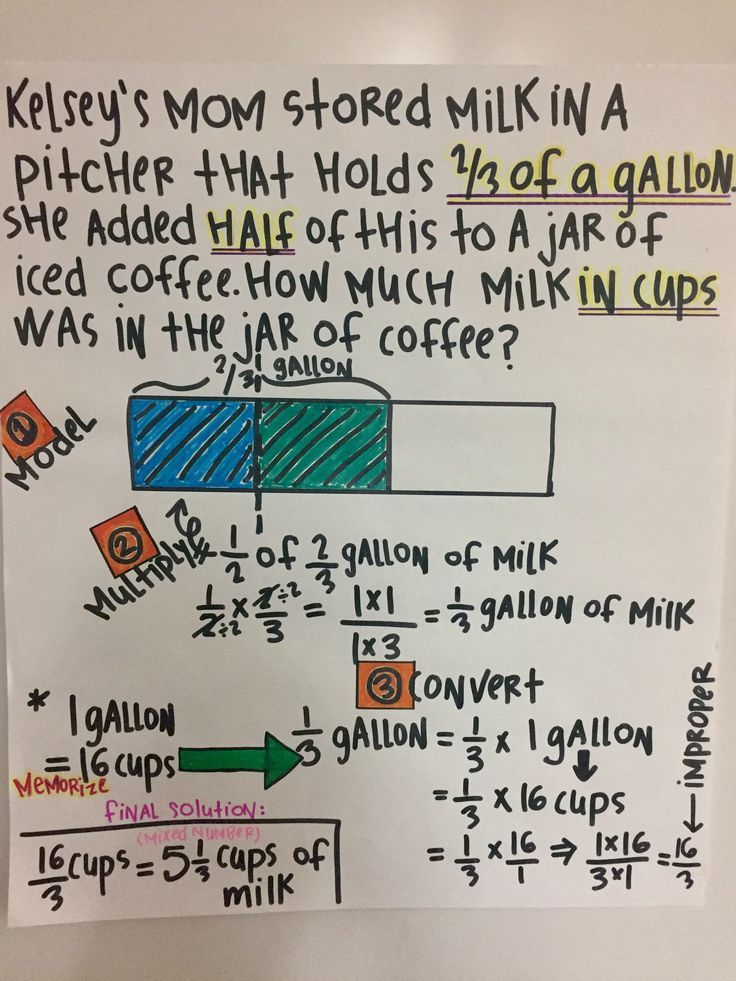 Kelsey's mom stored milk in a
pitcher that holds 2/3 of a gallon.
She added half of this to a jar of
iced coffee. How much milk in cups
was in the jar of coffee?
2/3 gallon
① Model
② Multiply
1/2 of 2/3 gallon of milk
1/2÷2 × 2÷2/3 = 1×1/1×3 = 1/3 gallon of milk
③ Convert
* 1 gallon
= 16 cups
Memorize
1/3 gallon = 1/3 × 1 gallon
= 1/3 × 16 cups
= 1/3 × 16/1 ⇒ 1×16/3×1 = 16/3
← improper
Final solution:
(mixed number)
16/3 cups = 5 1/3 cups of
milk